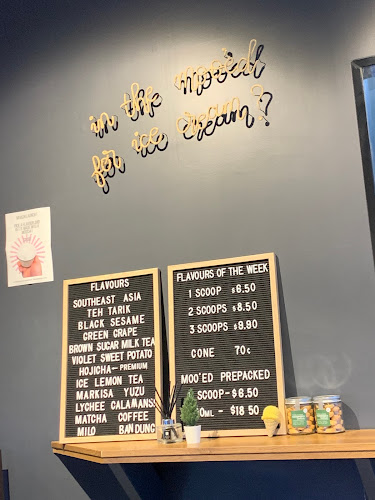 in the moo'ed
for ice cream?
FLAVOURS
SOUTHEAST ASIA
TEH TARIK
BLACK SESAME
GREEN GRAPE
BROWN SUGAR MILK TEA
VIOLET SWEET POTATO
HOJICHA-PREMIUM
ICE LEMON TEA
MARKISA YUZU
LYCHEE CALAMANSI
MATCHA COFFEE
MILO BANDUNG
FLAVOURS OF THE WEEK
1 SCOOP $6.50
2 SCOOPS $8.50
3 SCOOPS $9.90
CONE 70¢
MOO'ED PREPACKED
SCOOP-$6.50
0ML - $18.50